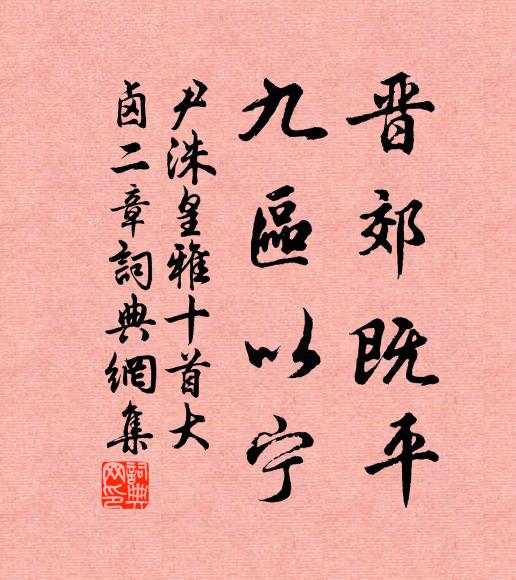 晋郊既平
九區以宁
尹洙皇雅十首大
卤二章詞典網集
詞典
网印